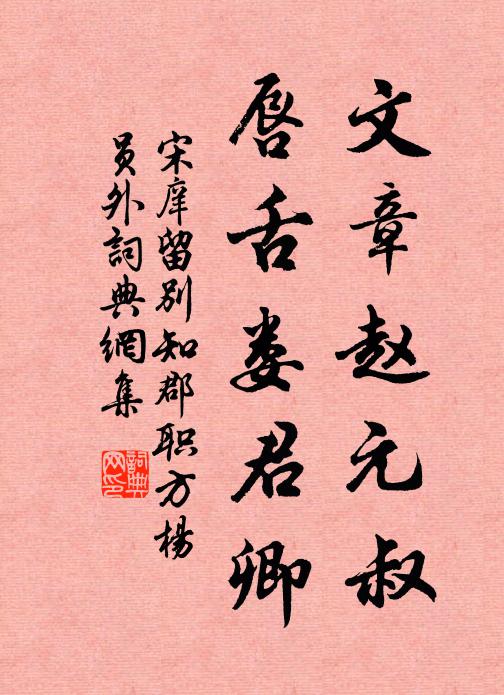 文章赵元叔
唇舌娄君卿
宋庠留别知郡职方杨
员外詞典網集
詞典网印